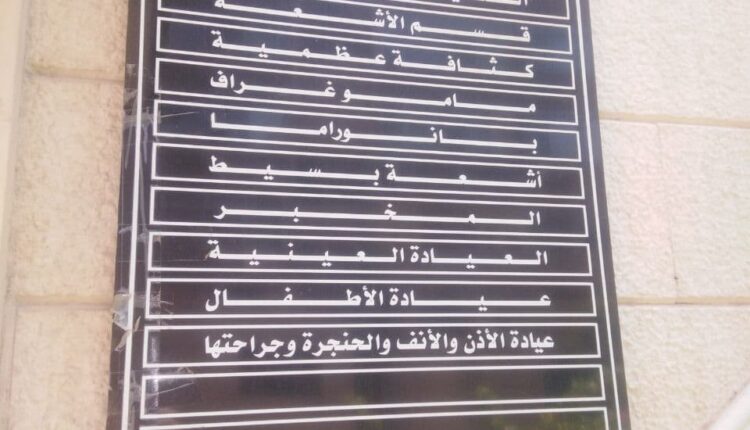 قسم الأشعة
كثافة عظمية
مامو غراف
بانوراما
أشعة بسيط
المخبر
العيادة العينية
عيادة الأطفال
عيادة الأذن والأنف والحنجرة وجراحتها